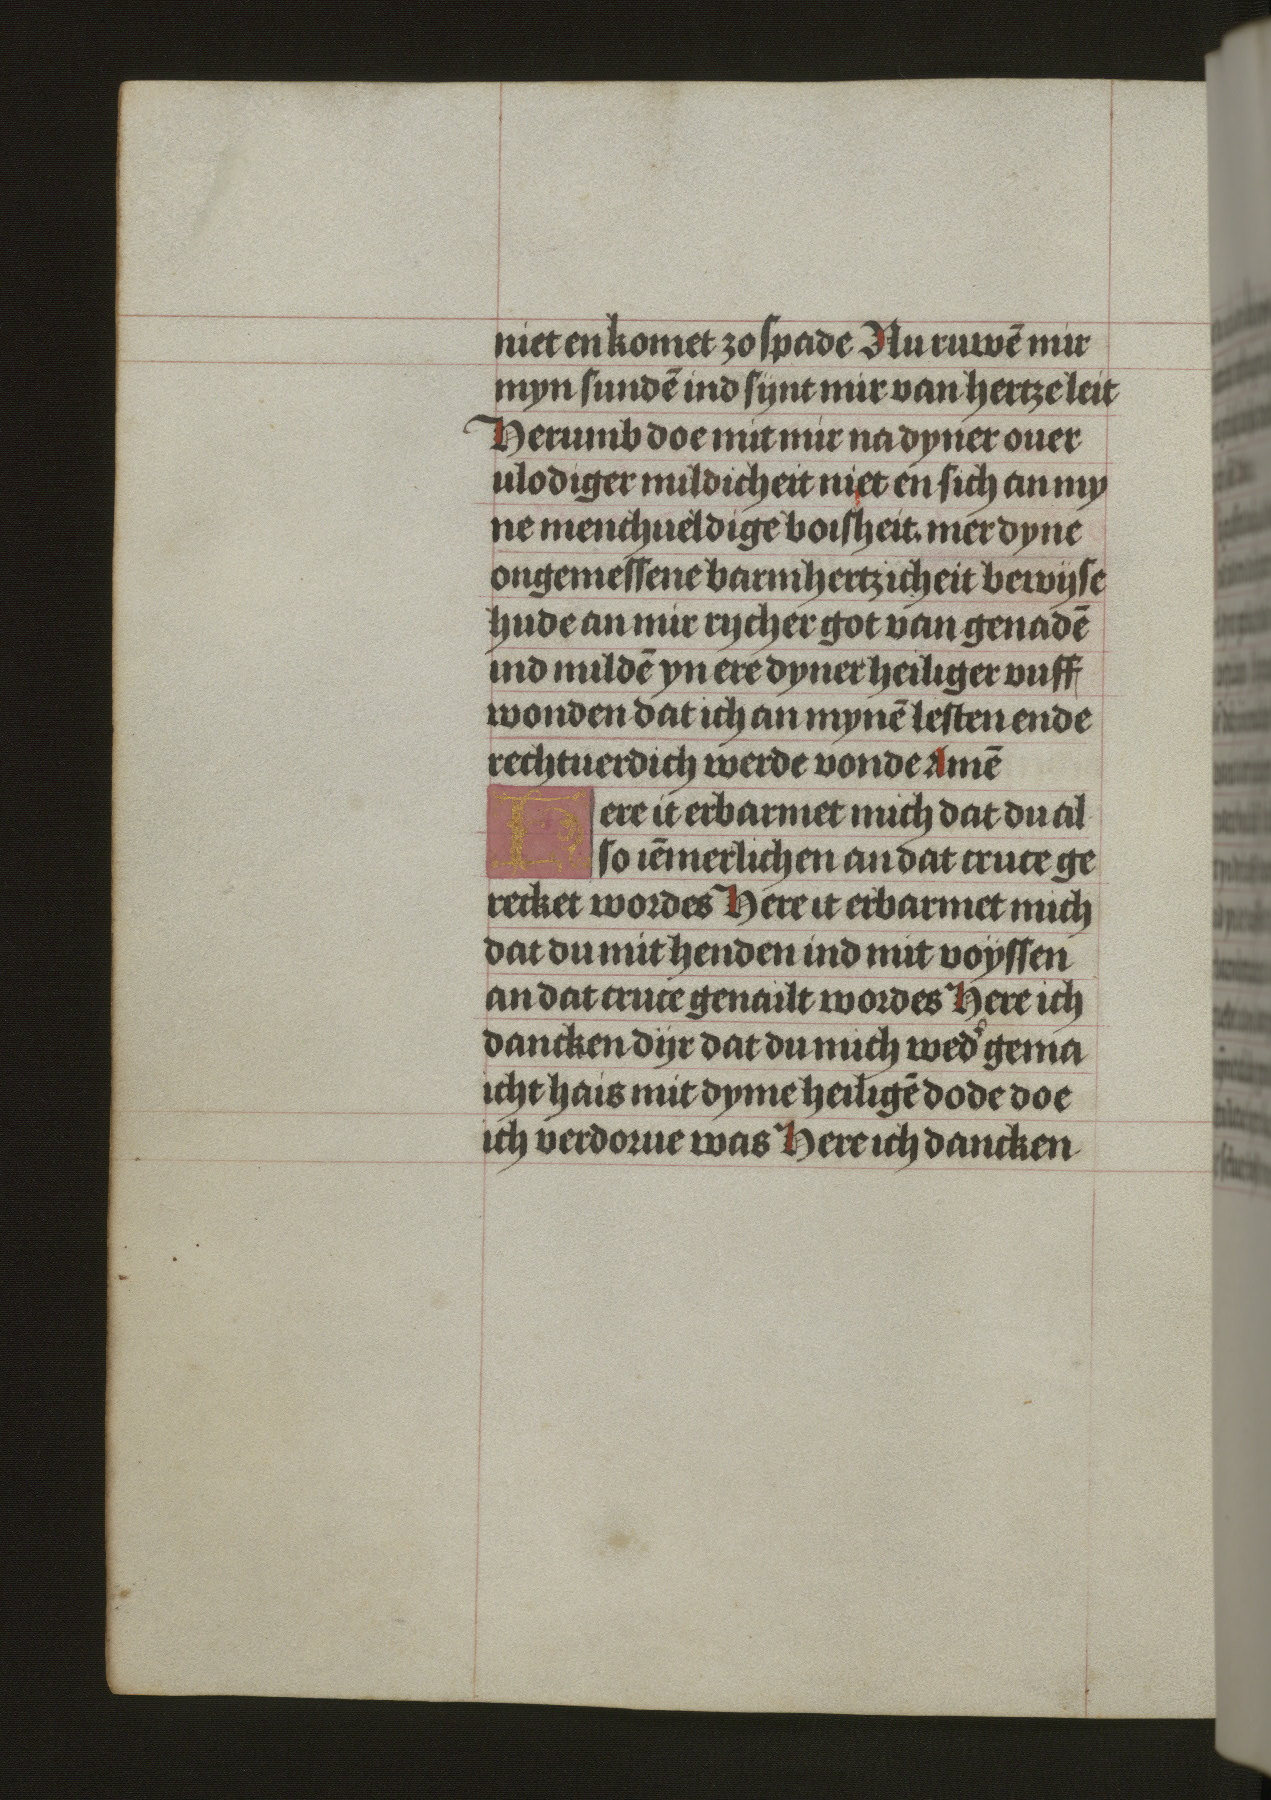 niet en komet zo spade Nu ruwē mir
myn sundē ind sijnt mir van hertze leit
Herumb doe mit mir na dyner ouer
ulodiger mildicheit niet en sich an my
ne menchueldige boisheit. mer dyne
ongemessene barmhertzicheit bewijse
hude an mir rycher got van genadē
ind mildē yn ere dyner heiliger vuff
wonden dat ich an mynē lesten ende
rechtuerdich werde vonde Amē
Here it erbarmet mich dat du al
so iēmerlichen an dat cruce ge
recket wordes Here it erbarmet mich
dat du mit henden ind mit voyssen
an dat cruce genailt wordes Here ich
dancken dijr dat du mich wed' gema
icht hais mit dyme heiligē dode doe
ich verdorue was Here ich dancken